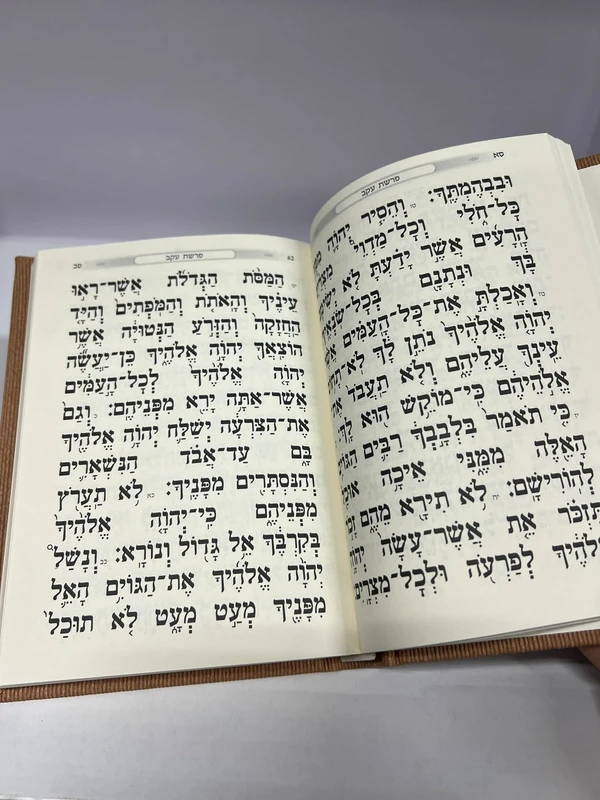 סא
פרשת עקב
וּבִבְהֶמְתֶּֽךָ׃ טו וְהֵסִ֧יר יְהוָ֛ה
כָּל־חֹ֑לִי וְכָל־מַדְוֵי֩
הָרָעִ֜ים אֲשֶׁ֣ר יָדַ֗עְתָּ לֹ֤א
בָּ֔ךְ וּנְתָנָ֖ם
טז וְאָכַלְתָּ֣ אֶת־כָּל־הָֽעַמִּ֗ים
יְהוָ֤ה אֱלֹהֶ֙יךָ֙ נֹתֵ֣ן לָ֔ךְ
עֵֽינְךָ֖ עֲלֵיהֶ֑ם וְלֹ֤א תַעֲבֹד֙
אֱלֹ֣הֵיהֶ֔ם כִּֽי־מוֹקֵ֥שׁ ה֖וּא לָֽךְ
יז כִּ֤י תֹאמַר֙ בִּלְבָ֣בְךָ֔ רַבִּ֛ים
הָאֵ֖לֶּה מִמֶּ֑נִּי אֵיכָ֥ה
לְהוֹרִישָֽׁם׃ יח לֹ֥א תִירָ֖א מֵהֶ֑ם
תִּזְכֹּ֗ר אֵ֤ת אֲשֶׁר־עָשָׂה֙
לְפַרְעֹ֖ה וּלְכָל־מִצְרָֽיִם
62
פרשת עקב
סב
יט הַמַּסֹּ֨ת הַגְּדֹלֹ֜ת אֲשֶׁר־רָא֣וּ
עֵינֶ֗יךָ וְהָאֹתֹ֤ת וְהַמֹּֽפְתִים֙ וְהַיָּ֤ד
הַחֲזָקָה֙ וְהַזְּרֹ֣עַ הַנְּטוּיָ֔ה אֲשֶׁ֥ר
הוֹצִֽאֲךָ֖ יְהוָ֣ה אֱלֹהֶ֑יךָ כֵּֽן־יַעֲשֶׂ֞ה
יְהוָ֤ה אֱלֹהֶ֙יךָ֙ לְכָל־הָ֣עַמִּ֔ים
אֲשֶׁר־אַתָּ֥ה יָרֵ֖א מִפְּנֵיהֶֽם׃ כ וְגַם֙
אֶת־הַצִּרְעָ֔ה יְשַׁלַּ֛ח יְהוָ֥ה אֱלֹהֶ֖יךָ
בָּ֑ם עַד־אֲבֹ֗ד הַנִּשְׁאָרִ֛ים
וְהַנִּסְתָּרִ֖ים מִפָּנֶֽיךָ׃ כא לֹ֥א תַעֲרֹ֖ץ
מִפְּנֵיהֶ֑ם כִּֽי־יְהוָ֤ה אֱלֹהֶ֙יךָ֙
בְּקִרְבֶּ֔ךָ אֵ֥ל גָּד֖וֹל וְנוֹרָֽא׃ כב וְנָשַׁל֩
יְהוָ֨ה אֱלֹהֶ֜יךָ אֶת־הַגּוֹיִ֥ם הָאֵ֛ל
מִפָּנֶ֖יךָ מְעַ֣ט מְעָ֑ט לֹ֤א תוּכַל֙